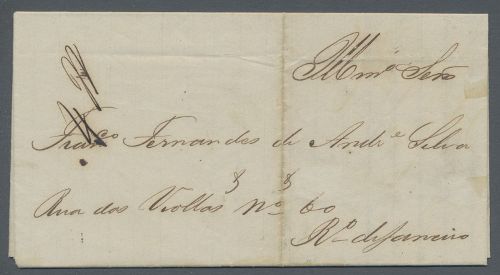 Illmo Senr
Franco Fernandes de Andre Silva
Rua dos Violas No 60
Ro de Janeiro